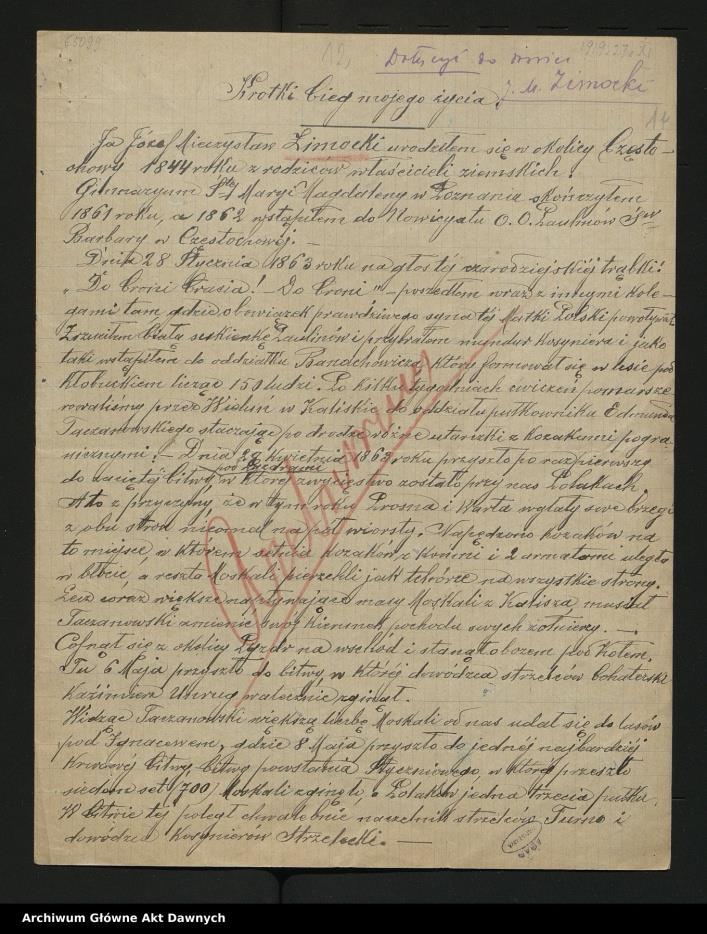 65099
12,
1919.27.XI
Dołączyć do
J. M. Zimocki
14
Krotki bieg mojego życia.
Ja Józef Mieczysław Zimocki urodziłem się w okolicy Często-
chowy 1844 roku z rodziców właścicieli ziemskich.
Gimnazyum Stej Maryi Magdaleny w Poznaniu skończyłem
1861 roku, a 1862 wstąpiłem do Nowicyatu O. O. Paulinów Św
Barbary w Częstochowie. —
Dnia 28 Stycznia 1863 roku na głos tej czarodziejskiej trąbki:
„Do broni bracia! — Do broni" — poszedłem wraz z innymi kole-
gami tam, gdzie obowiązek prawdziwego syna tej Matki Polski powoływał
Zrzuciłem białą sukienkę Paulinów i przybrałem mundur Kosyniera i jako
taki wstąpiłem do oddziału Banachowicza, który formował się w lesie pod
Kłobuckiem licząc 150 ludzi. Po kilku tygodniach ćwiczeń pomasze-
rowaliśmy przez Wieluń w Kaliskie do oddziału pułkownika Edmunda
Taczanowskiego staczając po drodze różne utarczki z kozakami pogra-
nicznymi. — Dnia 29 kwietnia 1863 roku przyszło po raz pierwszy
pod Pyzdrami
do zaciętej bitwy, w której zwycięstwo zostało przy nas Polakach.
A to z przyczyny, że w tym roku Prosna i Warta wylały swe brzegi
z obu stron nieomal na pół wiorsty. Napędzono kozaków na
to miejsce, w którem setnia kozaków z końmi i 2 armatami uległa
w błocie, a reszta Moskali pierzchli jak tchórze na wszystkie strony.
Lecz coraz większe napływające masy Moskali z Kalisza, musiał
Taczanowski zmienić swój kierunek pochodu swych żołnierzy. —
Cofnął się z okolicy Pyzdr na wschód i stanął obozem pod Kołem.
Tu 6 Maja przyszło do bitwy, w której dowódzca strzelców bohaterski
Kazimierz Unrug walecznie zginął.
Widząc Taczanowski większą liczbę Moskali od nas udał się do lasów
pod Ignacewem, gdzie 8 Maja przyszło do jednej najbardziej
krwawej bitwy, bitwy powstania Styczniowego, w której przeszło
siedem set (700) Moskali zginęło, a Polaków jedna trzecia pułku.
W bitwie tej poległ chwalebnie naczelnik strzelców Turno i
dowódzca Kosynierów Strzelecki. —
Archiwum
Archiwum Główne Akt Dawnych